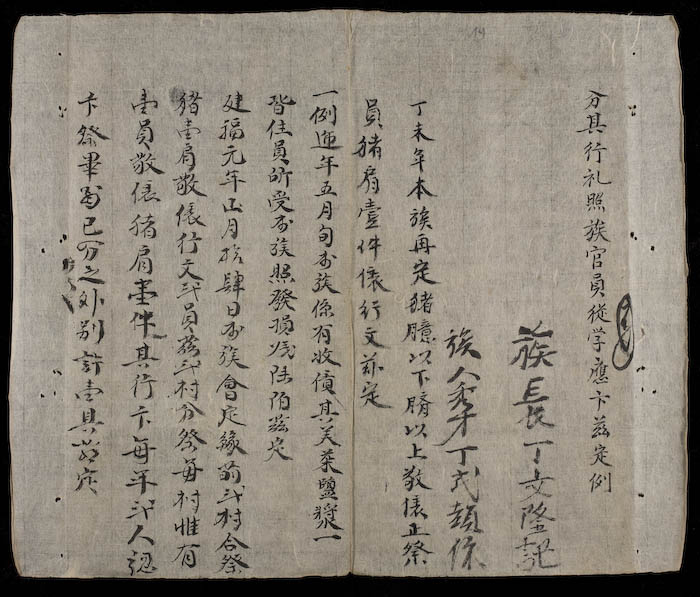 分其行礼照族官員從学應卞茲定例
族長丁文隆記
族人秀才丁氏顛係
丁未年本族再定猪臆以下臍以上敬俵正祭
員猪肩壹件俵行文茲定
一例遞年五月旬本族係有收債其羙菜鹽漿一
皆住員所受本族照發損錢陆陌茲定
建福元年正月拾肆日本族會定緣前弍村合祭
猪壹肩敬俵行文弍員茲弍村分祭每村惟有
壹員敬俵猪肩壹件其行卞每年弍人認
卞祭畢留已分之外別許壹具茲定